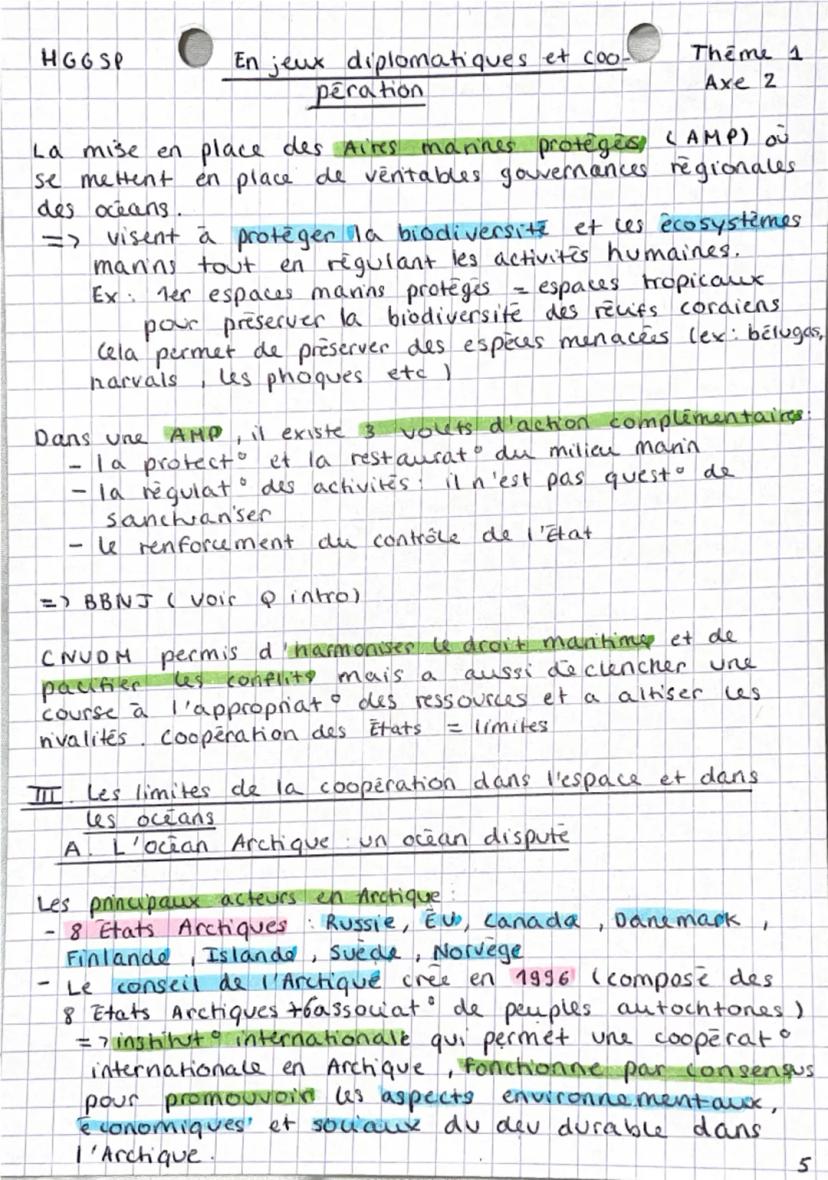 HGGSP
Enjeux diplomatiques et coo-
pération
Thème 1
Axe 2
La mise en place des Aires marines protégés (AMP) où
se mettent en place de véritables gouvernances régionales
des océans.
=> visent à protéger la biodiversité et les écosystèmes
marins tout en régulant les activités humaines.
Ex : 1er espaces marins protégés = espaces tropicaux
pour préserver la biodiversité des récifs cordiens
Cela permet de préserver des espèces menacées (ex : bélugas,
narvals, les phoques etc)
Dans une AMP, il existe 3 volets d'action complémentaires :
- la protect° et la restaurat° du milieu marin
- la régulat° des activités : il n'est pas quest° de
sanctuariser
- le renforcement du contrôle de l'État
=> BBNJ (voir Q intro)
CNUDM permis d'harmoniser le droit maritime et de
pacifier les conflits mais a aussi déclencher une
course à l'appropriat° des ressources et a altiser les
rivalités. Coopération des États = limites
III. Les limites de la coopération dans l'espace et dans
les océans
A. L'océan Archique : un océan disputé
Les principaux acteurs en Archique :
- 8 États Archiques : Russie, ÉU, Canada, Danemark,
Finlande, Islande, Suède, Norvège
- Le conseil de l'Archique crée en 1996 (composé des
8 États Archiques + 6 associat° de peuples autochtones)
=> institut° internationale qui permet une coopérat°
internationale en Archique, fonctionne par consensus
pour promouvoir les aspects environnementaux,
économiques et sociaux du dev durable dans
l'Archique.
5